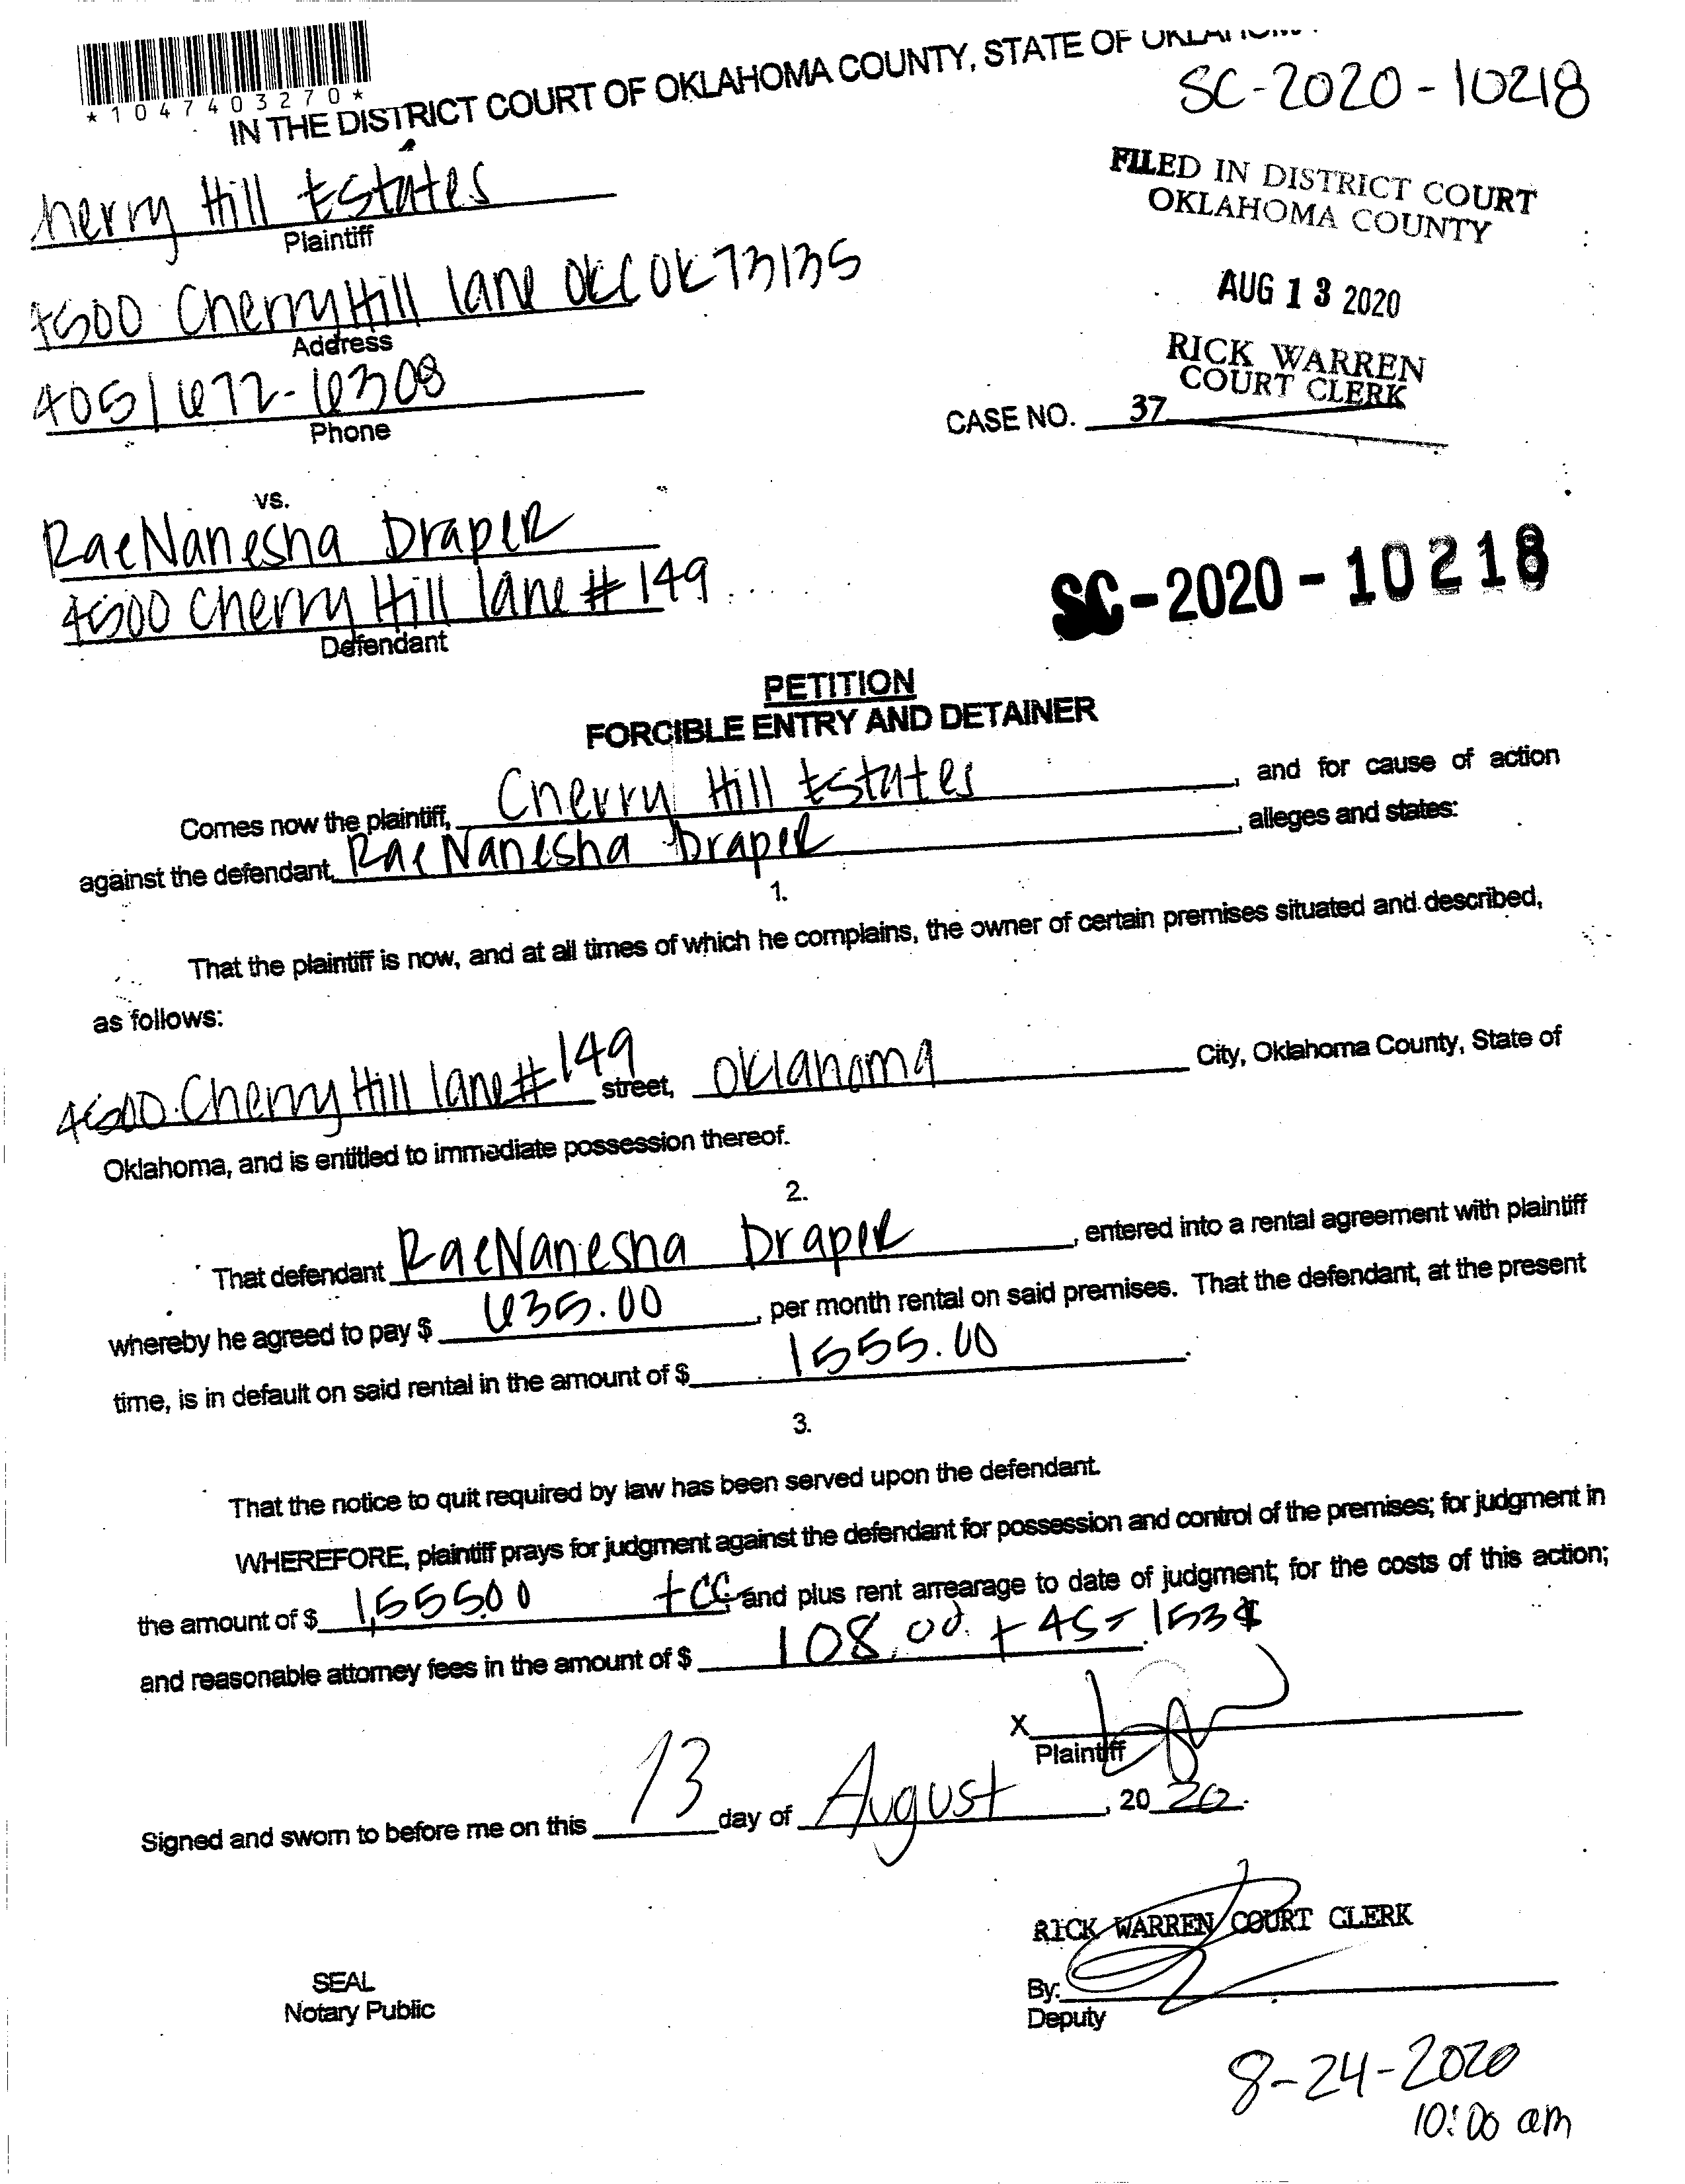 *1047403270*
IN THE DISTRICT COURT OF OKLAHOMA COUNTY, STATE OF OKLAHOMA
SC-2020-10218
FILED IN DISTRICT COURT
OKLAHOMA COUNTY
AUG 13 2020
RICK WARREN
COURT CLERK
herry Hill Estates
Plaintiff
4500 Cherry Hill lane OKC OK 73135
Address
405/672-6308
Phone
CASE NO. 37
vs.
RaeNanesha Draper
4500 Cherry Hill lane #149
Defendant
SC-2020-10218
PETITION
FORCIBLE ENTRY AND DETAINER
Comes now the plaintiff, Cherry Hill Estates, and for cause of action
against the defendant, RaeNanesha Draper, alleges and states:
1.
That the plaintiff is now, and at all times of which he complains, the owner of certain premises situated and described,
as follows:
4500 Cherry Hill lane #149 street, Oklahoma City, Oklahoma County, State of
Oklahoma, and is entitled to immediate possession thereof.
2.
That defendant RaeNanesha Draper, entered into a rental agreement with plaintiff
whereby he agreed to pay $ 635.00, per month rental on said premises. That the defendant, at the present
time, is in default on said rental in the amount of $ 1555.00.
3.
That the notice to quit required by law has been served upon the defendant.
WHEREFORE, plaintiff prays for judgment against the defendant for possession and control of the premises; for judgment in
the amount of $ 1,555.00 + CC and plus rent arrearage to date of judgment; for the costs of this action;
and reasonable attorney fees in the amount of $ 108.00 + 45 = 153 $.
X
Plaintiff
Signed and sworn to before me on this 13 day of August, 20 20.
RICK WARREN COURT CLERK
SEAL
Notary Public
By:
Deputy
8-24-2020
10:00 am